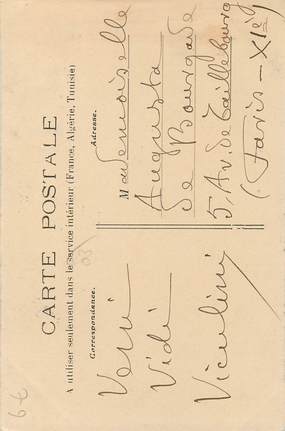 CARTE POSTALE
A utiliser seulement dans le service intérieur (France, Algérie, Tunisie)
Correspondance.
Veni
Vidi
Adresse.
Mademoiselle
Augusta
de Bourgade
5, Av. de Taillebourg
(Paris – XIè)
03
6€